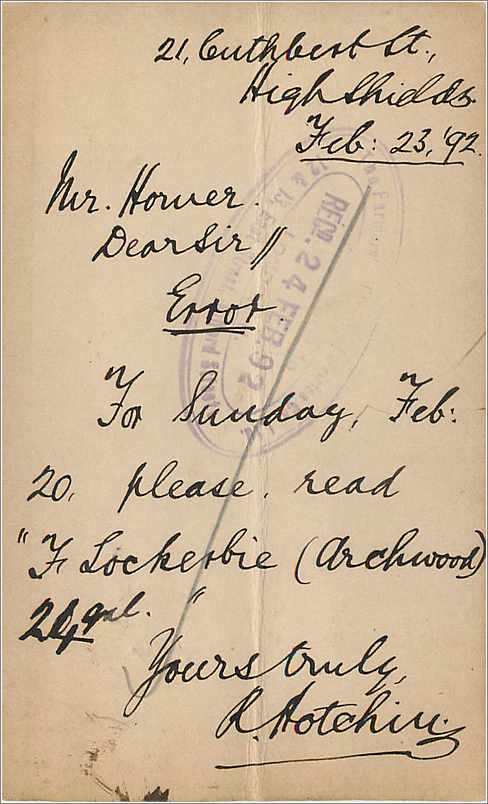 21, Cuthbert St.,
High Shields.
Feb: 23,'92.
Mr. Horner.
Dear Sir //
Error.
For Sunday, Feb:
20, please, read
"F Lockerbie (Archwood)
24 gal. "
Yours truly,
R. Hotchin.
RECD. 24 FEB. 92